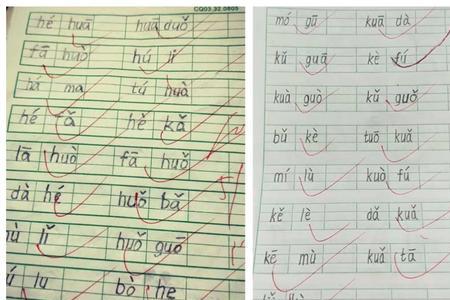 CQ03.32.0805
hé huā huā duǒ
fā huò hú lí
bá ma tú huà
hé fǎ hě kǎ
lā huò fā huǒ
dà hé huǒ bǎ
lǐ huǒ guō
lu bò he
mó gū kuā dà
kǔ guā kè fú
kuà guò kǔ guǒ
bǔ kè tuō kuǎ
mí lù kuò fú
kě lè dǎ kuǎ
kē mù kuǎ tā